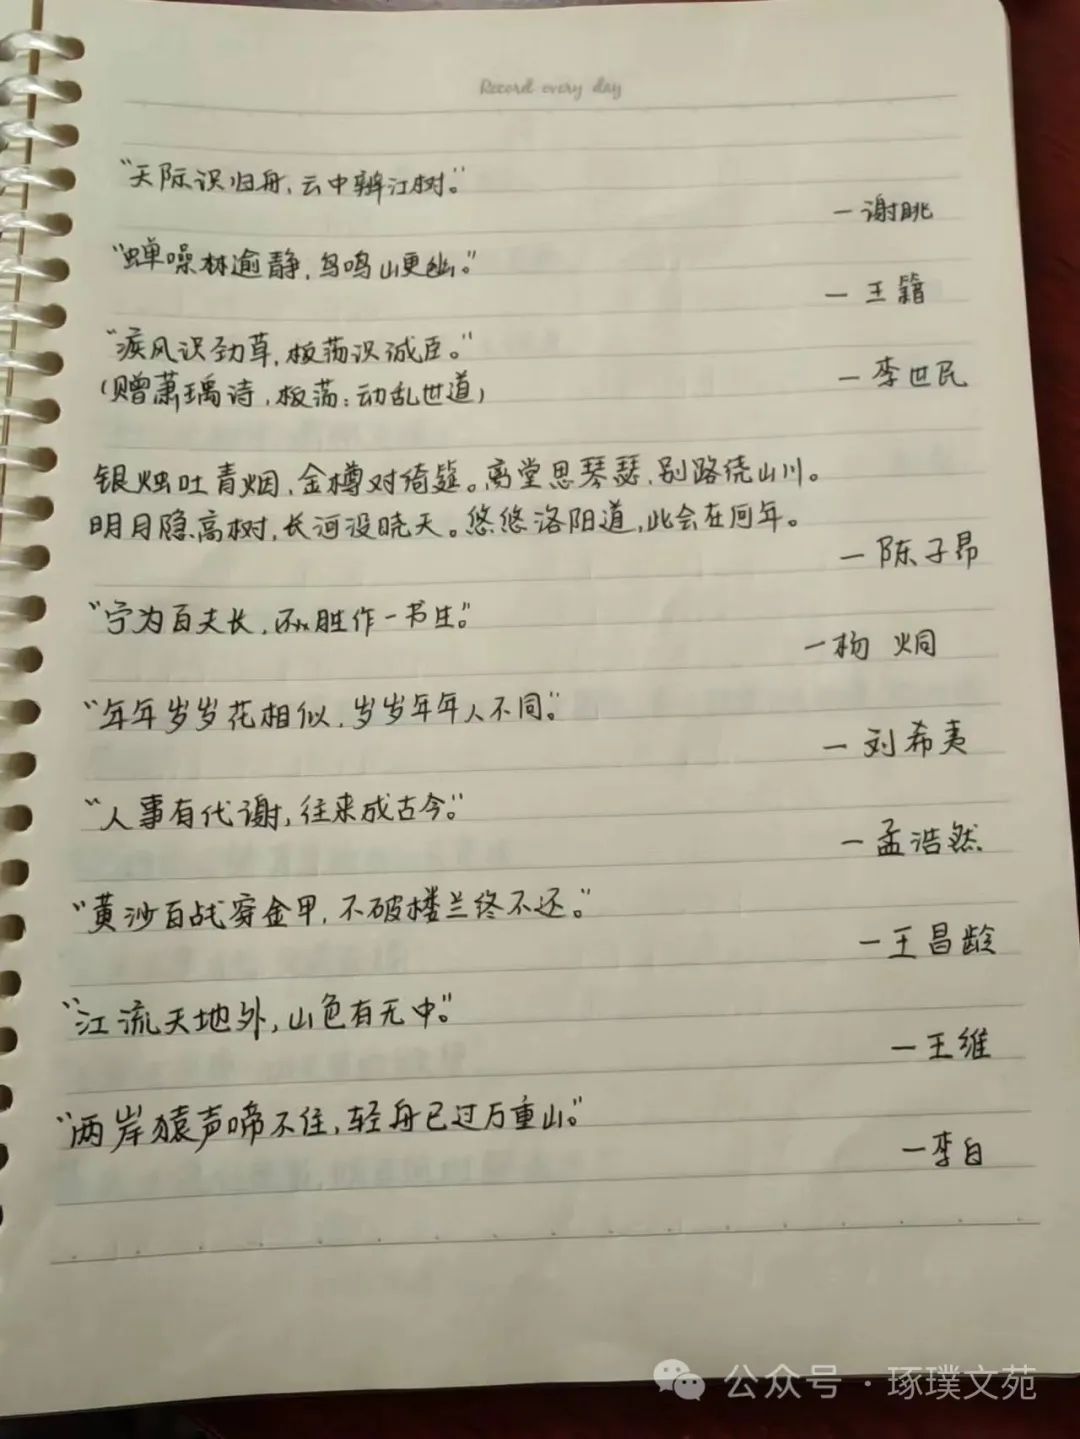 Record every day
“天际识归舟，云中辨江树。”
—谢眺
“蝉噪林逾静，鸟鸣山更幽。”
—王籍
“疾风识劲草，板荡识诚臣。”
（赠萧瑀诗，板荡：动乱世道）
—李世民
银烛吐青烟，金樽对绮筵。离堂思琴瑟，别路绕山川。
明月隐高树，长河没晓天。悠悠洛阳道，此会在何年。
—陈子昂
“宁为百夫长，胜作一书生。”
—杨炯
“年年岁岁花相似，岁岁年年人不同。”
—刘希夷
“人事有代谢，往来成古今。”
—孟浩然
“黄沙百战穿金甲，不破楼兰终不还。”
—王昌龄
“江流天地外，山色有无中。”
—王维
“两岸猿声啼不住，轻舟已过万重山。”
—李白
公众号·琢璞文苑